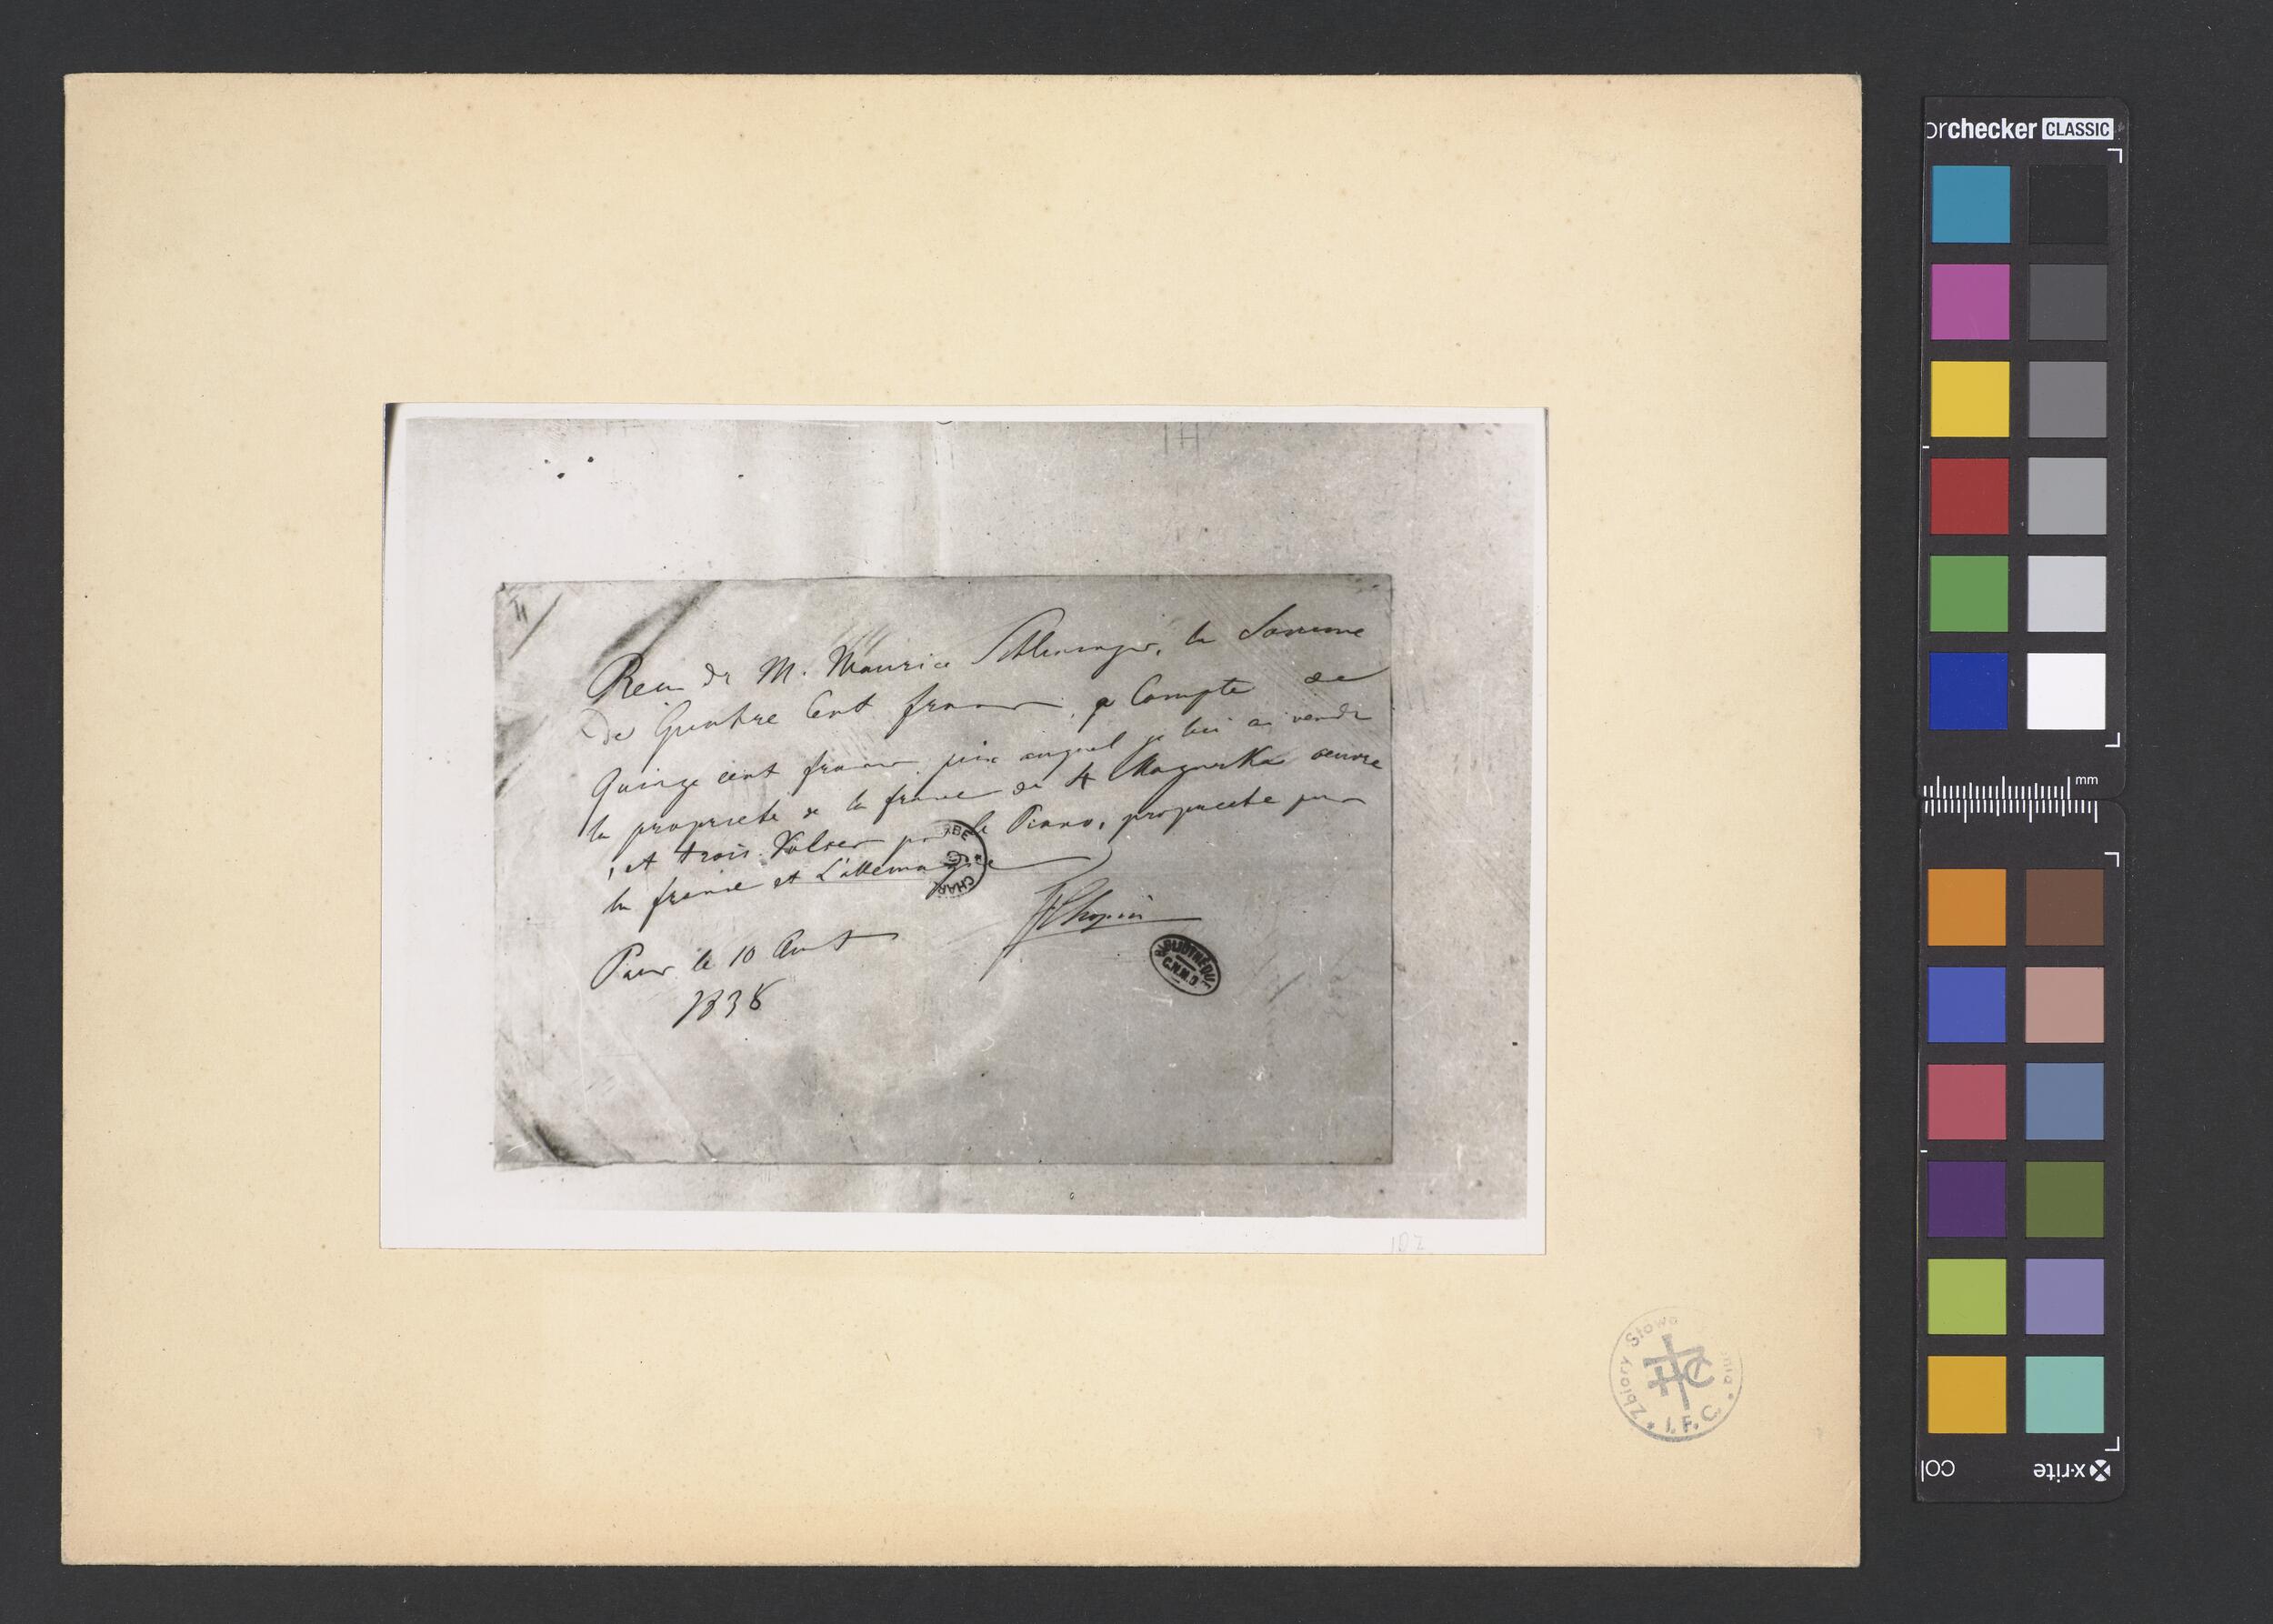 Recu de M. Maurice Schlesinger, la Somme
de Quatre Cent francs, a Compte de
Quinze cent francs, prix auquel je lui ai vendu
la propriete de la france de 4 Mazurkas oeuvre
, et trois Valses pour le Piano, propriete pour
la france et L'allemagne
FChopin
Paris le 10 Aout
1838
BIBLIOTHÈQUE
C.N.M.D.
102
Zbiory Słowa
I.F.C.
orchecker CLASSIC
mm
x-rite
col